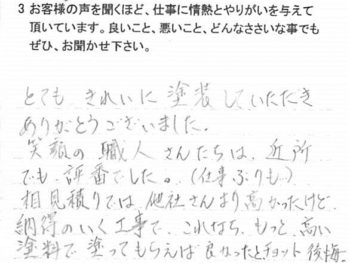 3 お客様の声を聞くほど、仕事に情熱とやりがいを与えて
頂いています。良いこと、悪いこと、どんなささいな事でも
ぜひ、お聞かせ下さい。
とても きれいに 塗装していただき
ありがとうございました。
笑顔の 職人 さんたちは、近所
でも、評番でした。(仕事ぶりも…)
相見積りでは 他社さんより高かったけど、
納得のいく工事で、これなら、もっと、高い
塗料で 塗ってもらえば 良かったとチョット 後悔。